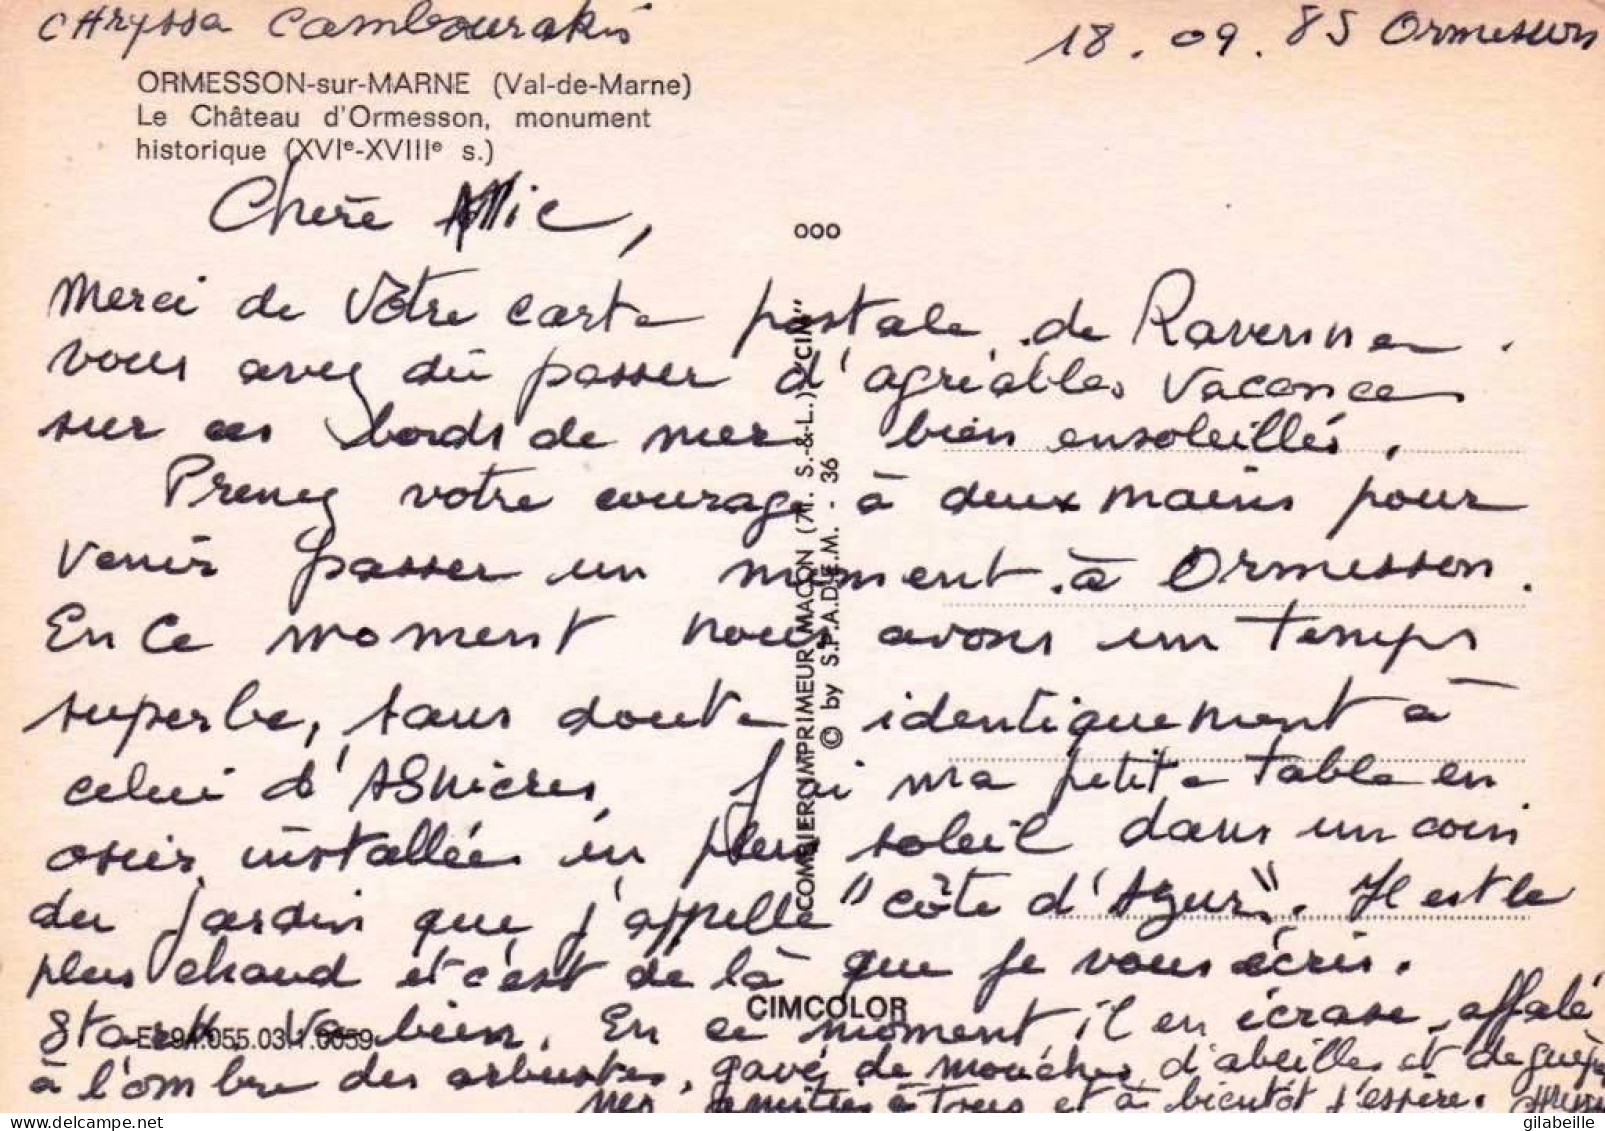 CHryssa Cambourakis
18.09.85 Ormesson
ORMESSON-sur-MARNE (Val-de-Marne)
Le Château d'Ormesson, monument
historique (XVIe-XVIIIe s.)
Chère Amie,
ooo
Merci de Vôtre carte postale de Ravenna.
vous avez dû passer d'agréables vacances
sur ces bords de mer bien ensoleillés.
Prenez votre courage à deux mains pour
venir passer un moment à Ormesson.
En ce moment nous avons un temps
superbe, sans doute identiquement à
celui d'ASnieres J'ai ma petite table en
osier installée en plein soleil dans un coin
du jardin que j'appelle "côte d'Azur". Il est le
plus chaud et c'est de là que je vous écris.
va bien. En ce moment il en écrase, affalé
à l'ombre des arbustes, gavé de mouches, d'abeilles et de guêpes
Mes amitiés à Tous et à bientôt j'espère.
COMBIER IMPRIMEUR MACON (71. S.-&-L.) "CIM"
© by S.P.A.D.E.M. - 36
CIMCOLOR
delcampe.net
gilabeille